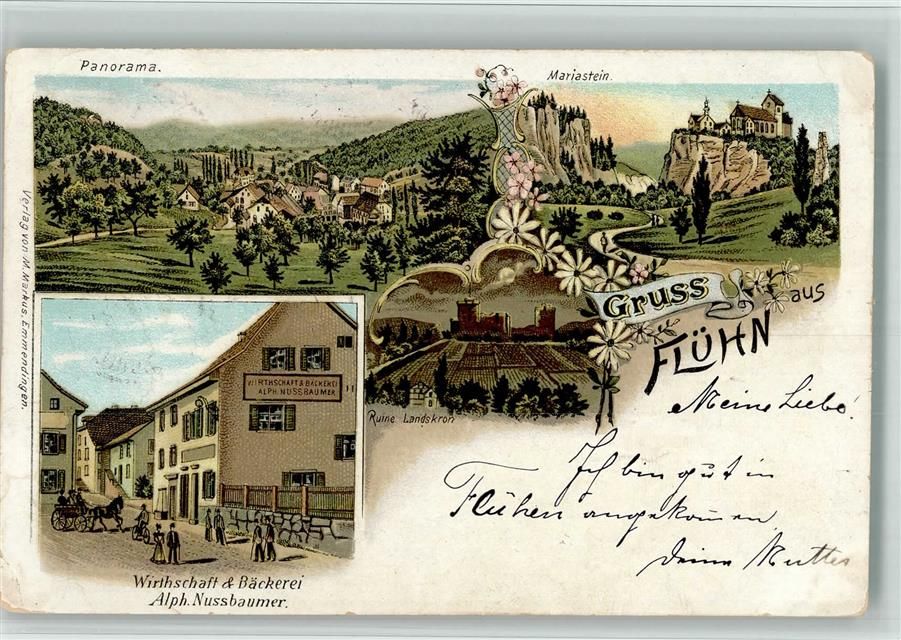 Panorama.
Mariastein.
Verlag von M. Markus, Emmendingen.
Gruss
aus
FLÜHN
WIRTHSCHAFT & BÄCKEREI
ALPH. NUSSBAUMER
Ruine Landskron
Meine Liebe!
Ich bin gut in
Flühen angekomen
deine Mutter
Wirthschaft & Bäckerei
Alph. Nussbaumer.